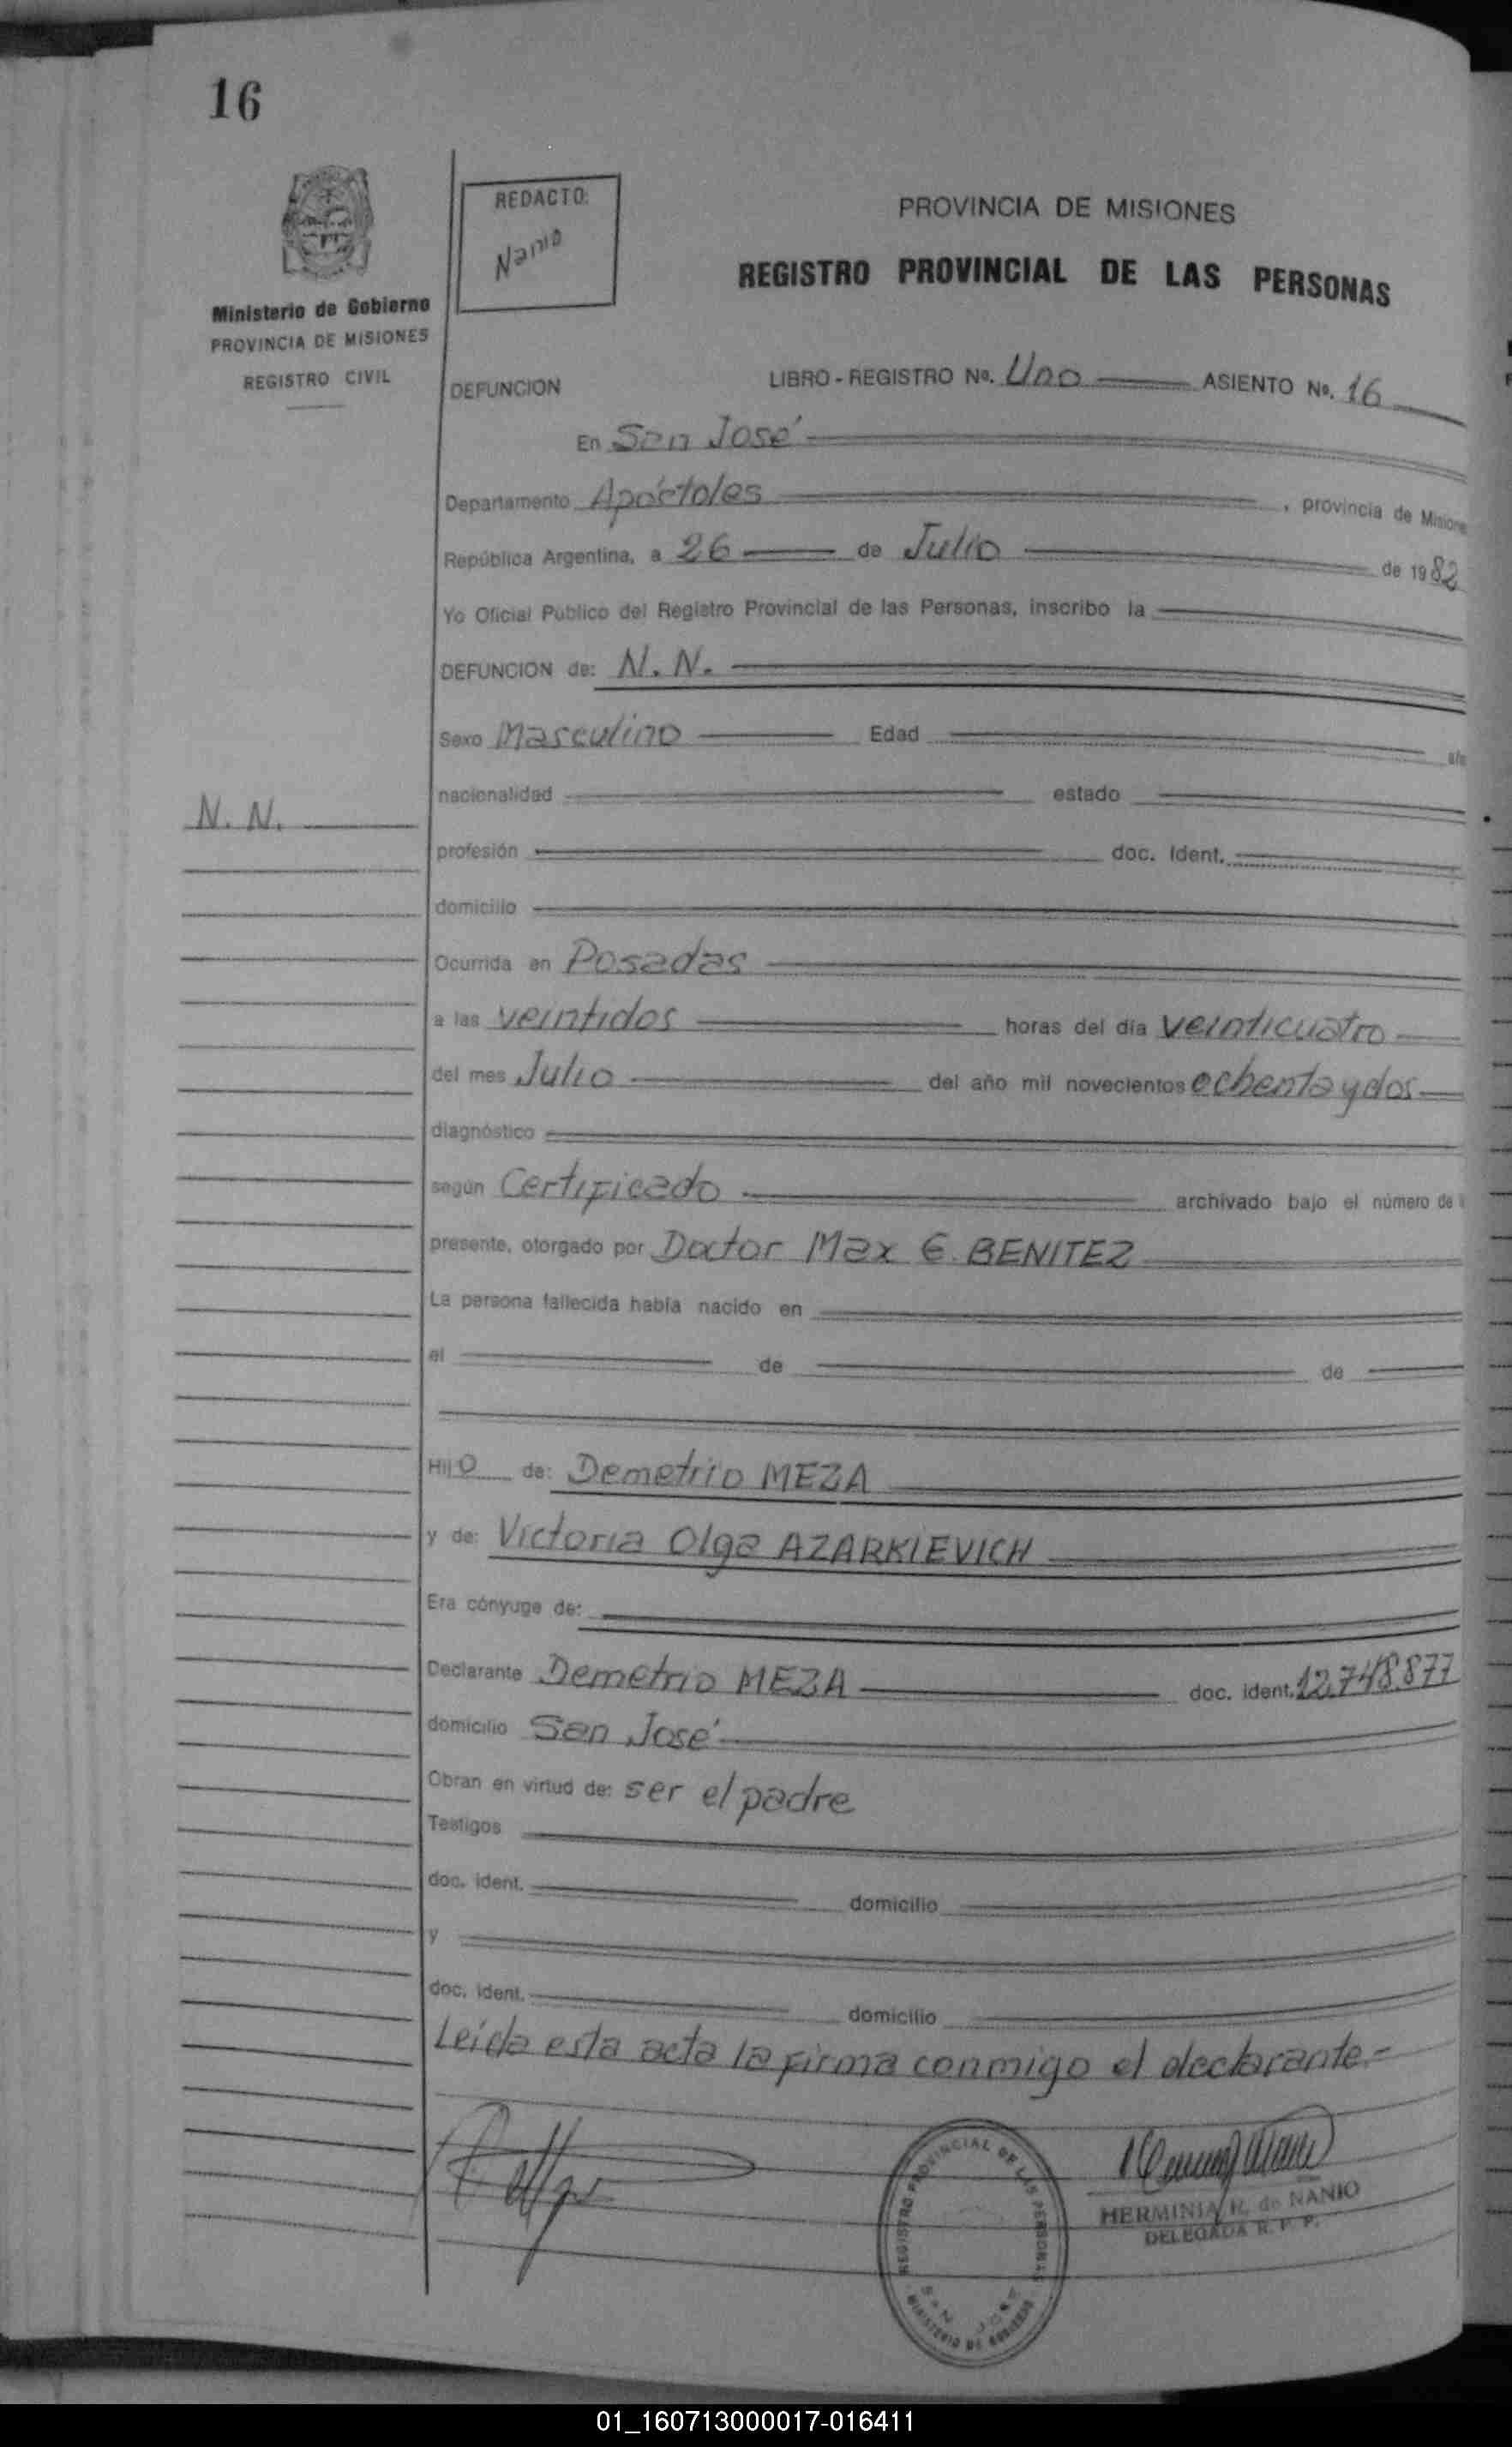 16
REDACTO:
Nanio
PROVINCIA DE MISIONES
REGISTRO PROVINCIAL DE LAS PERSONAS
Ministerio de Gobierno
PROVINCIA DE MISIONES
REGISTRO CIVIL
DEFUNCION
LIBRO - REGISTRO No. Uno ASIENTO No. 16
En San José
Departamento Apóstoles, provincia de Misione
República Argentina, a 26 de Julio de 1982
Yo Oficial Público del Registro Provincial de las Personas, inscribo la
DEFUNCION de: N. N.
Sexo Masculino Edad
N. N.
nacionalidad estado
profesión doc. Ident.
domicilio
Ocurrida en Posadas
a las veintidos horas del día veinticuatro
del mes Julio del año mil novecientos ochenta y dos
diagnóstico
según Certificado archivado bajo el número de
presente, otorgado por Doctor Max E. BENITEZ
La persona fallecida había nacido en
el de de
Hijo de: Demetrio MEZA
y de: Victoria Olga AZARKIEVICH
Era cónyuge de:
Declarante Demetrio MEZA doc. ident. 12.748.877
domicilio San José
Obran en virtud de: ser el padre
Testigos
doc. ident. domicilio
y
doc. ident. domicilio
Leída esta acta la firma conmigo el declarante.-
REGISTRO PROVINCIAL DE LAS PERSONAS
SAN JOSE
MINISTERIO DE GOBIERNO
HERMINIA R. de NANIO
DELEGADA R. P. P.
01_160713000017-016411